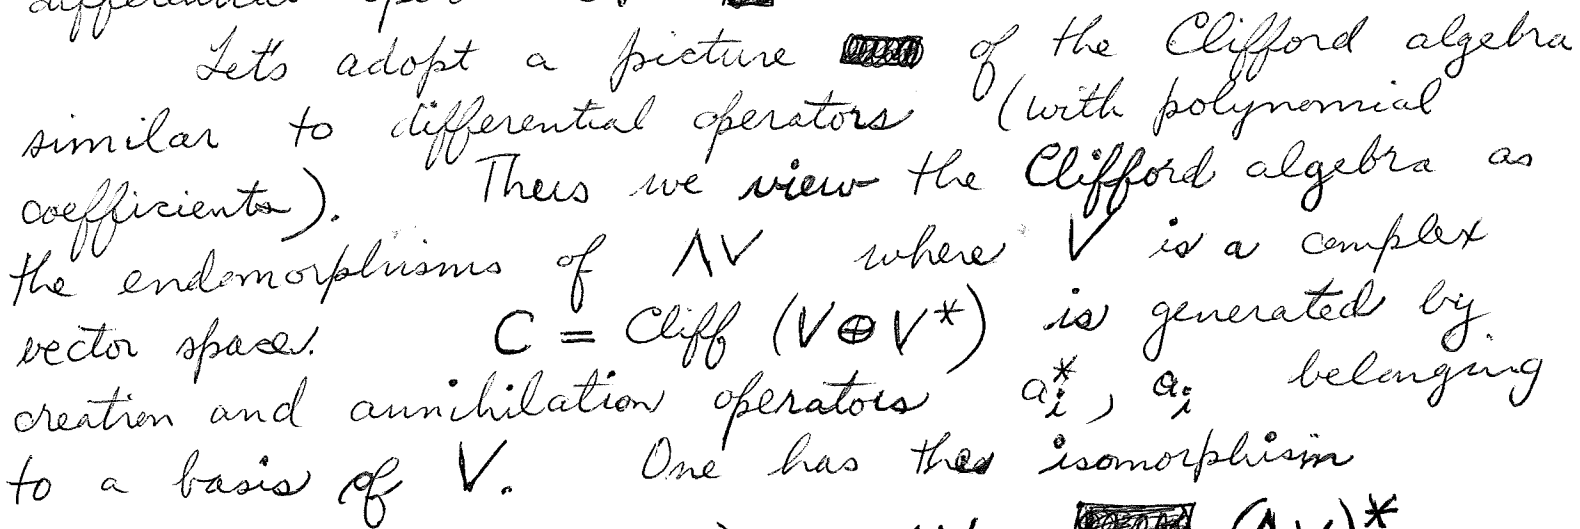 Let's adopt a picture of the Clifford algebra
similar to differential operators (with polynomial
coefficients). Thus we view the Clifford algebra as
the endomorphisms of ΛV where V is a complex
vector space. C = Cliff (V⊕V*) is generated by
creation and annihilation operators a_i^*, a_i belonging
to a basis of V. One has the isomorphism
(ΛV)*